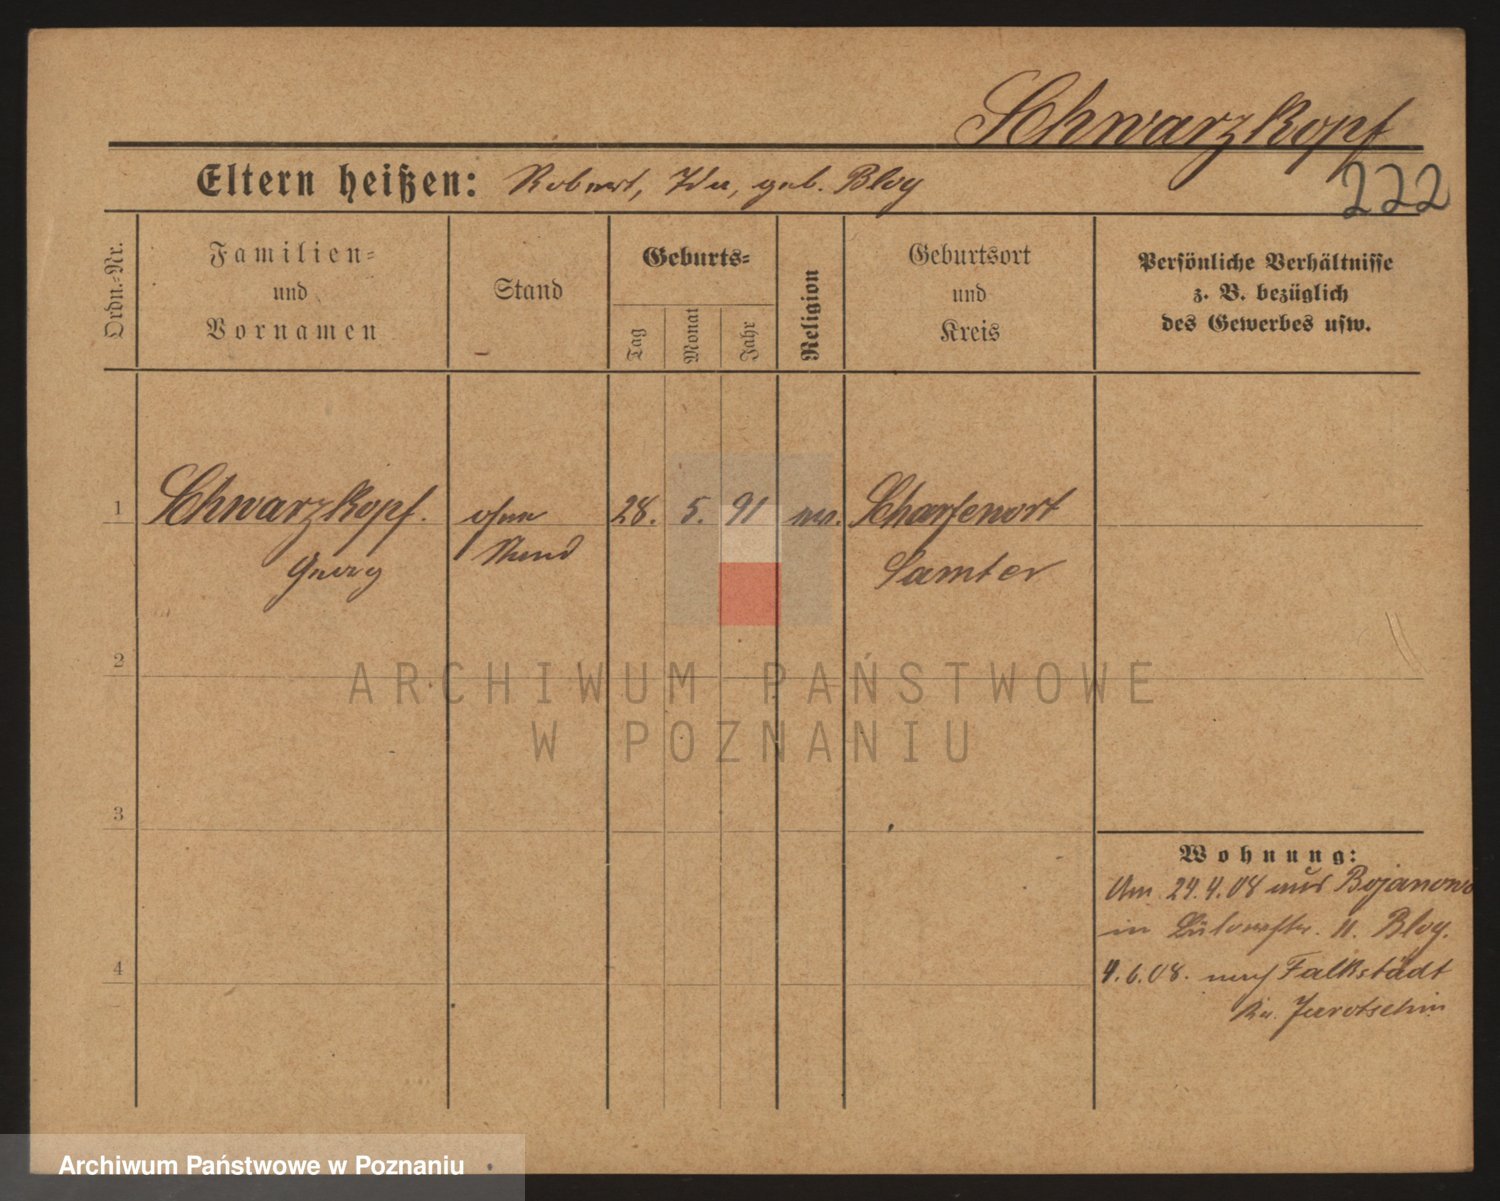 Schwarzkopf
222
Eltern heißen: Robert, Ida, geb. Bloy
Ordn.-Nr.
Familien-
und
Vornamen
Stand
Geburts-
Tag
Monat
Jahr
Religion
Geburtsort
und
Kreis
Persönliche Verhältnisse
z. B. bezüglich
des Gewerbes usw.
1
Schwarzkopf.
Georg
ohne
Stand
28. 5. 91
Scharfenort
Samter
2
3
4
ARCHIWUM PAŃSTWOWE
W POZNANIU
Wohnung:
Am 24.4.08 aus Bojanowo
in 11. Bloy.
4.6.08. nach Falkstädt
Kr. Jarotschin
Archiwum Państwowe w Poznaniu